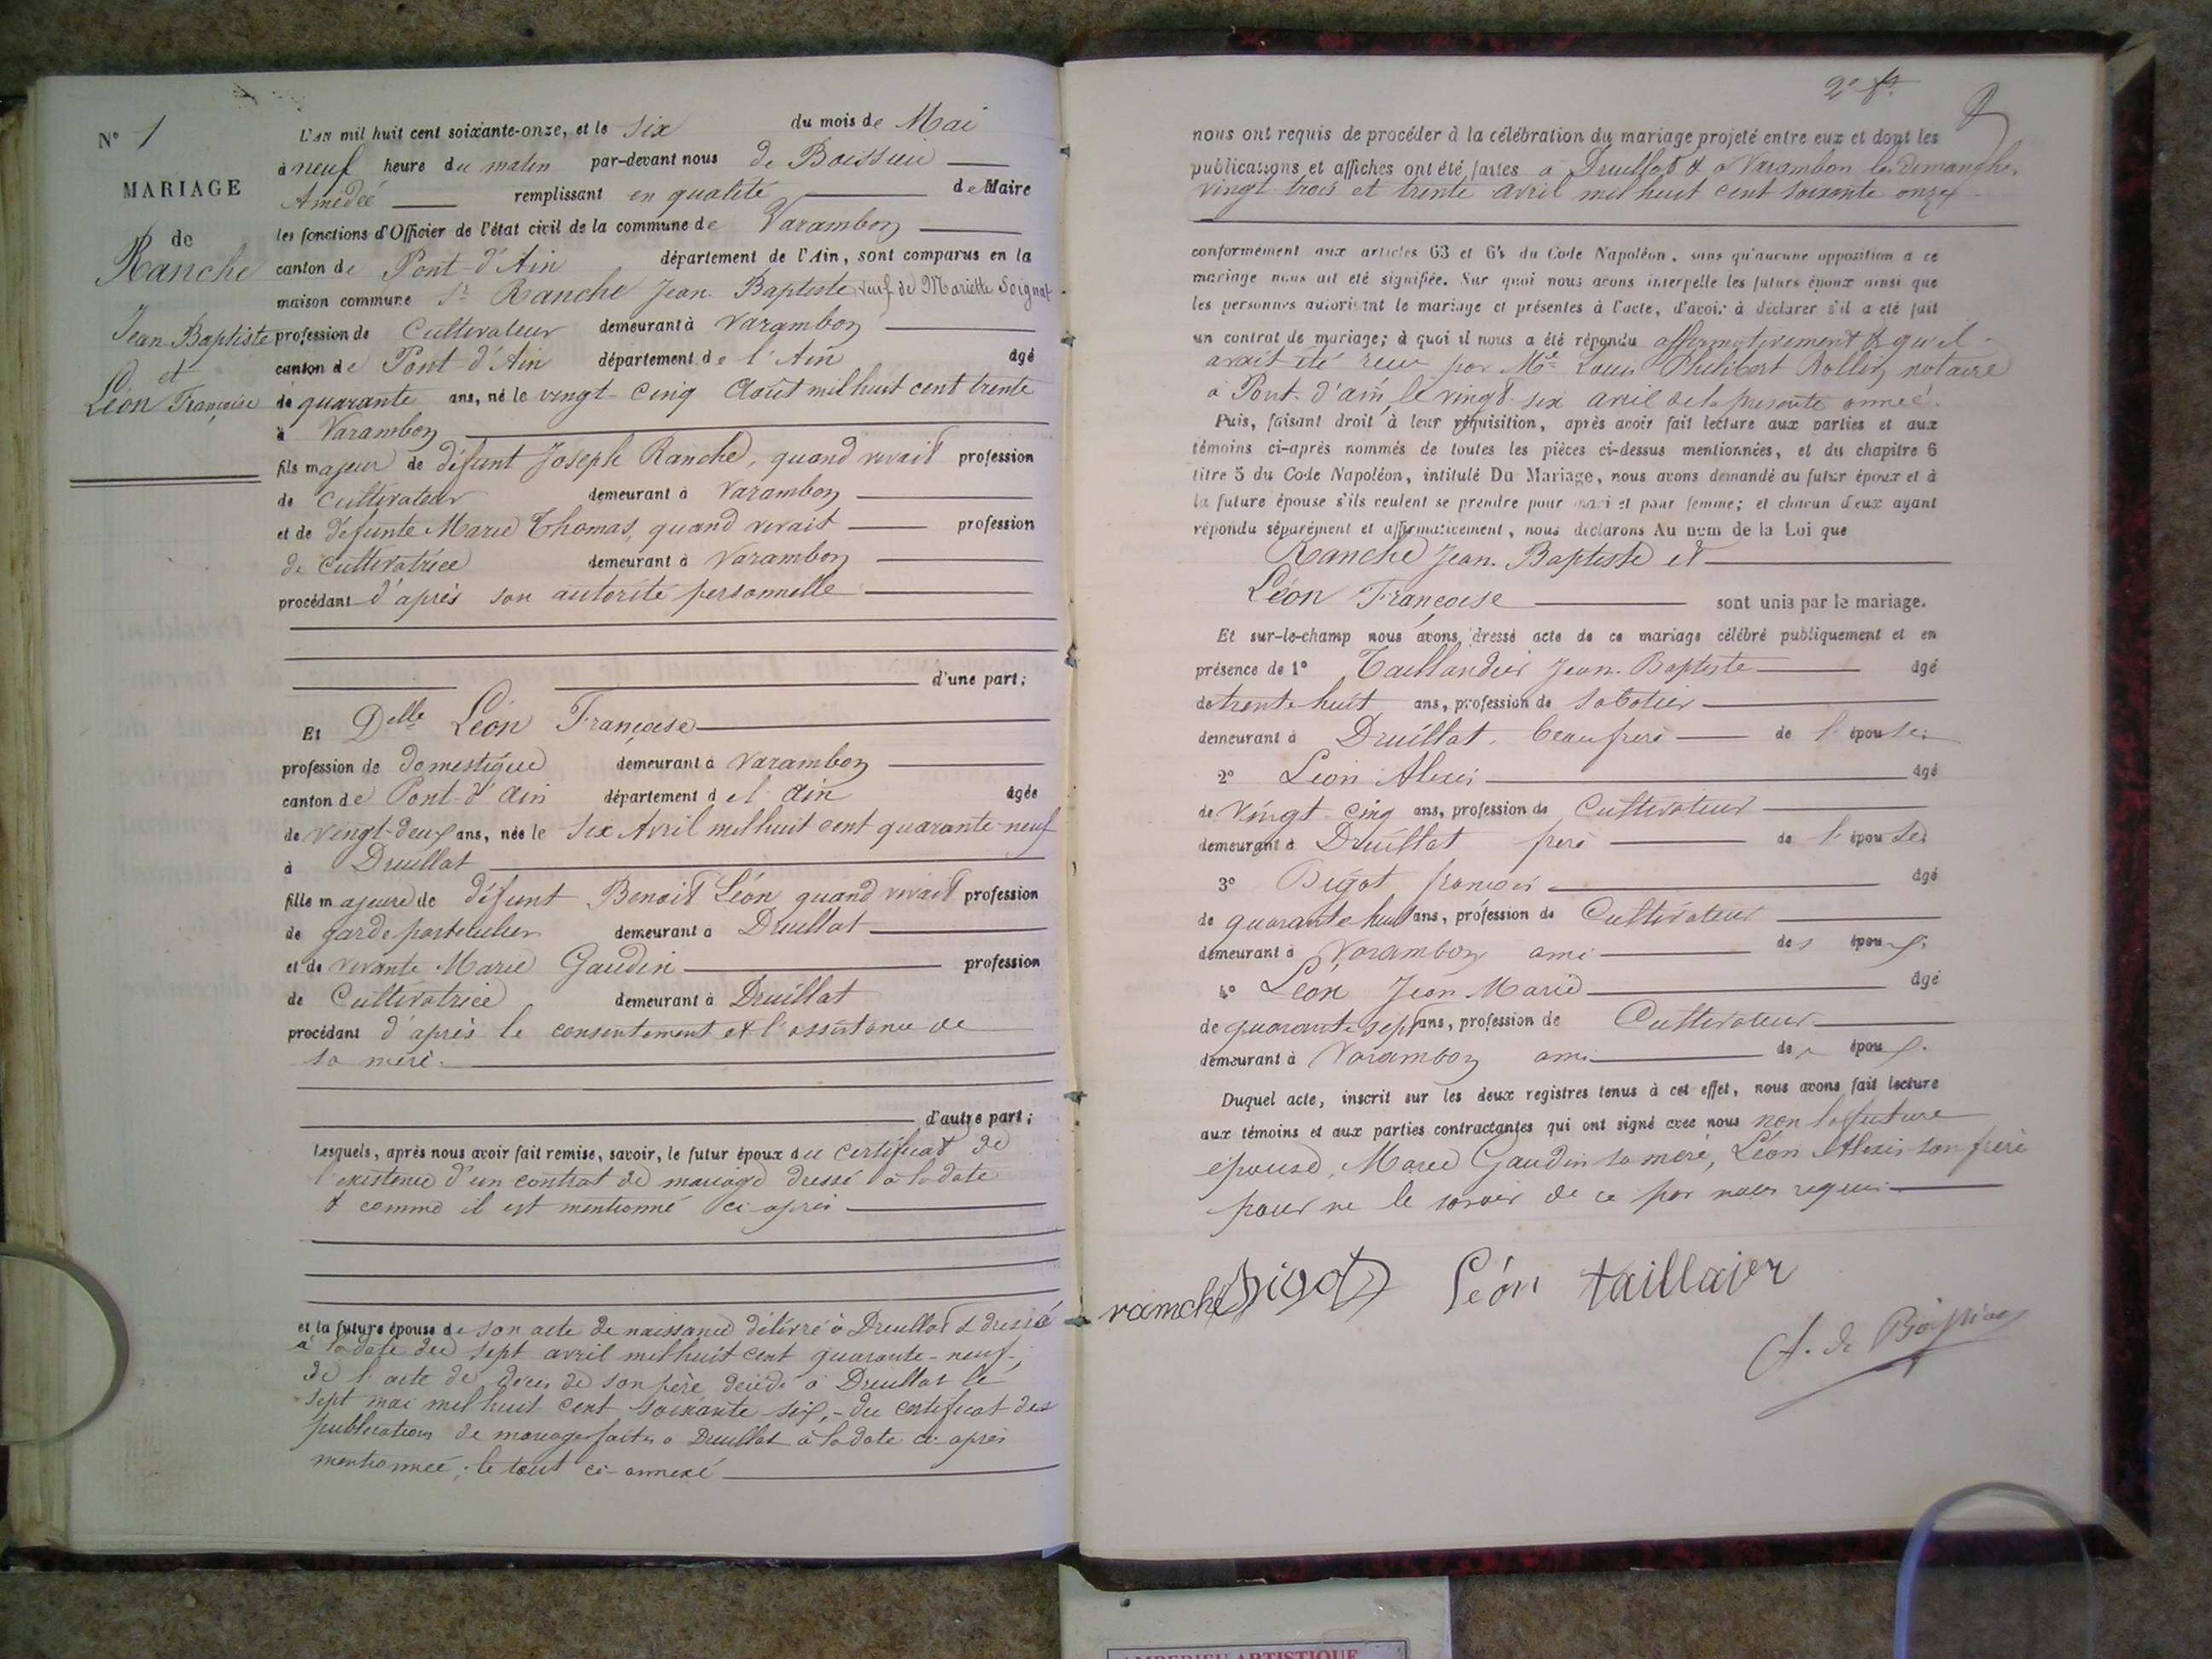 N° 1
MARIAGE
de
Ranche
Jean Baptiste
et
Léon Françoise
L'an mil huit cent soixante-onze, et le six du mois de Mai
à neuf heure du matin par-devant nous de Boissieu
Amédée remplissant en qualité de Maire
les fonctions d'Officier de l'état civil de la commune de Varambon
canton de Pont-d'Ain département de l'Ain, sont comparus en la
maison commune Sr Ranche Jean-Baptiste, veuf de Mariette Soignat
profession de Cultivateur demeurant à Varambon
canton de Pont-d'Ain département de l'Ain âgé
de quarante ans, né le vingt-cinq Août mil huit cent trente
à Varambon
fils majeur de défunt Joseph Ranche, quand vivait profession
de cultivateur demeurant à Varambon
et de défunte Marie Thomas, quand vivait profession
de cultivatrice demeurant à Varambon
procédant d'après son autorité personnelle
d'une part;
Et Delle Léon Françoise
profession de domestique demeurant à Varambon
canton de Pont-d'Ain département de l'Ain âgée
de vingt-deux ans, née le six Avril mil huit cent quarante-neuf
à Druillat
fille majeure de défunt Benoit Léon quand vivait profession
de garde particulier demeurant à Druillat
et de vivante Marie Gaudin profession
de Cultivatrice demeurant à Druillat
procédant d'après le consentement et l'assistance de
sa mère.
d'autre part;
Lesquels, après nous avoir fait remise, savoir, le futur époux du certificat de
l'existence d'un contrat de mariage dressé à la date
& comme il est mentionné ci-après
et la future épouse de son acte de naissance délivré à Druillat & dressé
à la date du sept avril mil huit cent quarante-neuf,
de l'acte de décès de son père décédé à Druillat le
sept mai mil huit cent soixante six, - du certificat des
publications de mariage faites à Druillat à la date ci-après
mentionnée; le tout ci-annexé
2e ft.
2
nous ont requis de procéder à la célébration du mariage projeté entre eux et dont les
publications et affiches ont été faites à Druillat & à Varambon les dimanches
vingt-trois et trente avril mil huit cent soixante onze
conformément aux articles 63 et 64 du Code Napoléon, sans qu'aucune opposition à ce
mariage nous ait été signifiée. Sur quoi nous avons interpellé les futurs époux ainsi que
les personnes autorisant le mariage et présentes à l'acte, d'avoir à déclarer s'il a été fait
un contrat de mariage; à quoi il nous a été répondu affirmativement & qu'il
avait été reçu par Me Louis Philibert Rollin, notaire
à Pont-d'Ain, le vingt-six avril de la présente année.
Puis, faisant droit à leur réquisition, après avoir fait lecture aux parties et aux
témoins ci-après nommés de toutes les pièces ci-dessus mentionnées, et du chapitre 6
titre 5 du Code Napoléon, intitulé Du Mariage, nous avons demandé au futur époux et à
la future épouse s'ils veulent se prendre pour mari et pour femme; et chacun d'eux ayant
répondu séparément et affirmativement, nous déclarons Au nom de la Loi que
Ranche Jean-Baptiste et
Léon Françoise sont unis par le mariage.
Et sur-le-champ nous avons dressé acte de ce mariage célébré publiquement et en
présence de 1° Taillandier Jean-Baptiste âgé
de trente huit ans, profession de sabotier
demeurant à Druillat, beau frère de l'épouse;
2° Léon Alexis âgé
de vingt-cinq ans, profession de cultivateur
demeurant à Druillat frère de l'épouse;
3° Bigot françois âgé
de quarante-huit ans, profession de Cultivateur
demeurant à Varambon ami des époux;
4° Léon Jean Marie âgé
de quarante-sept ans, profession de Cultivateur
demeurant à Varambon ami des époux.
Duquel acte, inscrit sur les deux registres tenus à cet effet, nous avons fait lecture
aux témoins et aux parties contractantes qui ont signé avec nous non la future
épouse, Marie Gaudin sa mère, Léon Alexis son frère
pour ne le savoir de ce par nous requis
ranche Bigot Léon taillaier
A. de Boissieu
AMBERIEU ARTISTIQUE